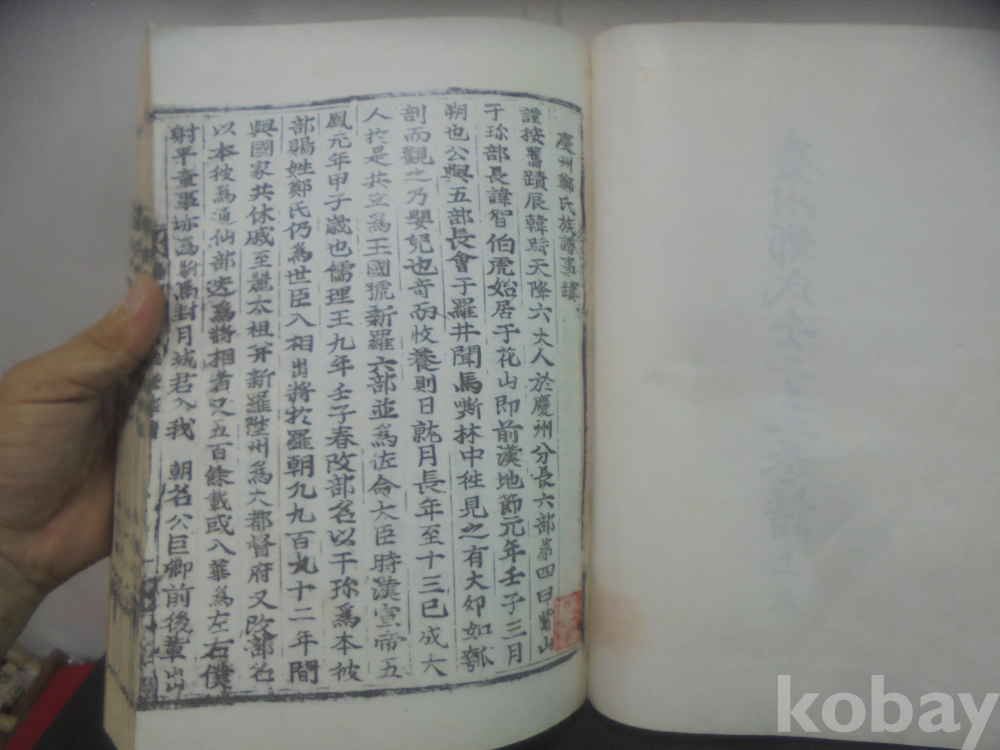 慶州鄭氏族譜事蹟
謹按舊蹟辰韓時天降六大人於慶州分長六部第四曰觜山
于珍部長諱智伯虎始居于花山即前漢地節元年壬子三月
朔也公與五部長會于羅井聞馬嘶林中徃見之有大卵如瓠
剖而觀之乃嬰兒也奇而收養則日就月長年至十三已成大
人於是共立爲王國號新羅六部並爲佐命大臣時漢宣帝五
鳳元年甲子歲也儒理王九年壬子春改部名以干珍爲本彼
部賜姓鄭氏仍爲世臣入相出將於羅朝九九百九十二年間
與國家共休戚至麗太祖并新羅陞州爲大都督府又改部名
以本彼爲通仙部迭爲將相者又五百餘載或入華爲左右僕
射平童事 封月城君入我 朝名公巨卿前後輩出
kobay